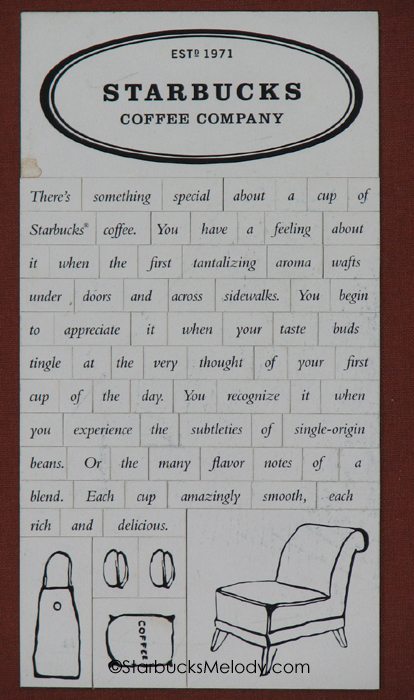 ESTD 1971
STARBUCKS
COFFEE COMPANY
There's something special about a cup of
Starbucks® coffee. You have a feeling about
it when the first tantalizing aroma wafts
under doors and across sidewalks. You begin
to appreciate it when your taste buds
tingle at the very thought of your first
cup of the day. You recognize it when
you experience the subtleties of single-origin
beans. Or the many flavor notes of a
blend. Each cup amazingly smooth, each
rich and delicious.
COFFEE
©StarbucksMelody.com